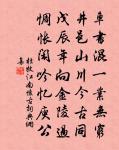 車書混一業無窮
井邑山川今古同
戊辰年向金陵過
惆悵閑吟憶庾公
杜牧江南懷古詞典網
集